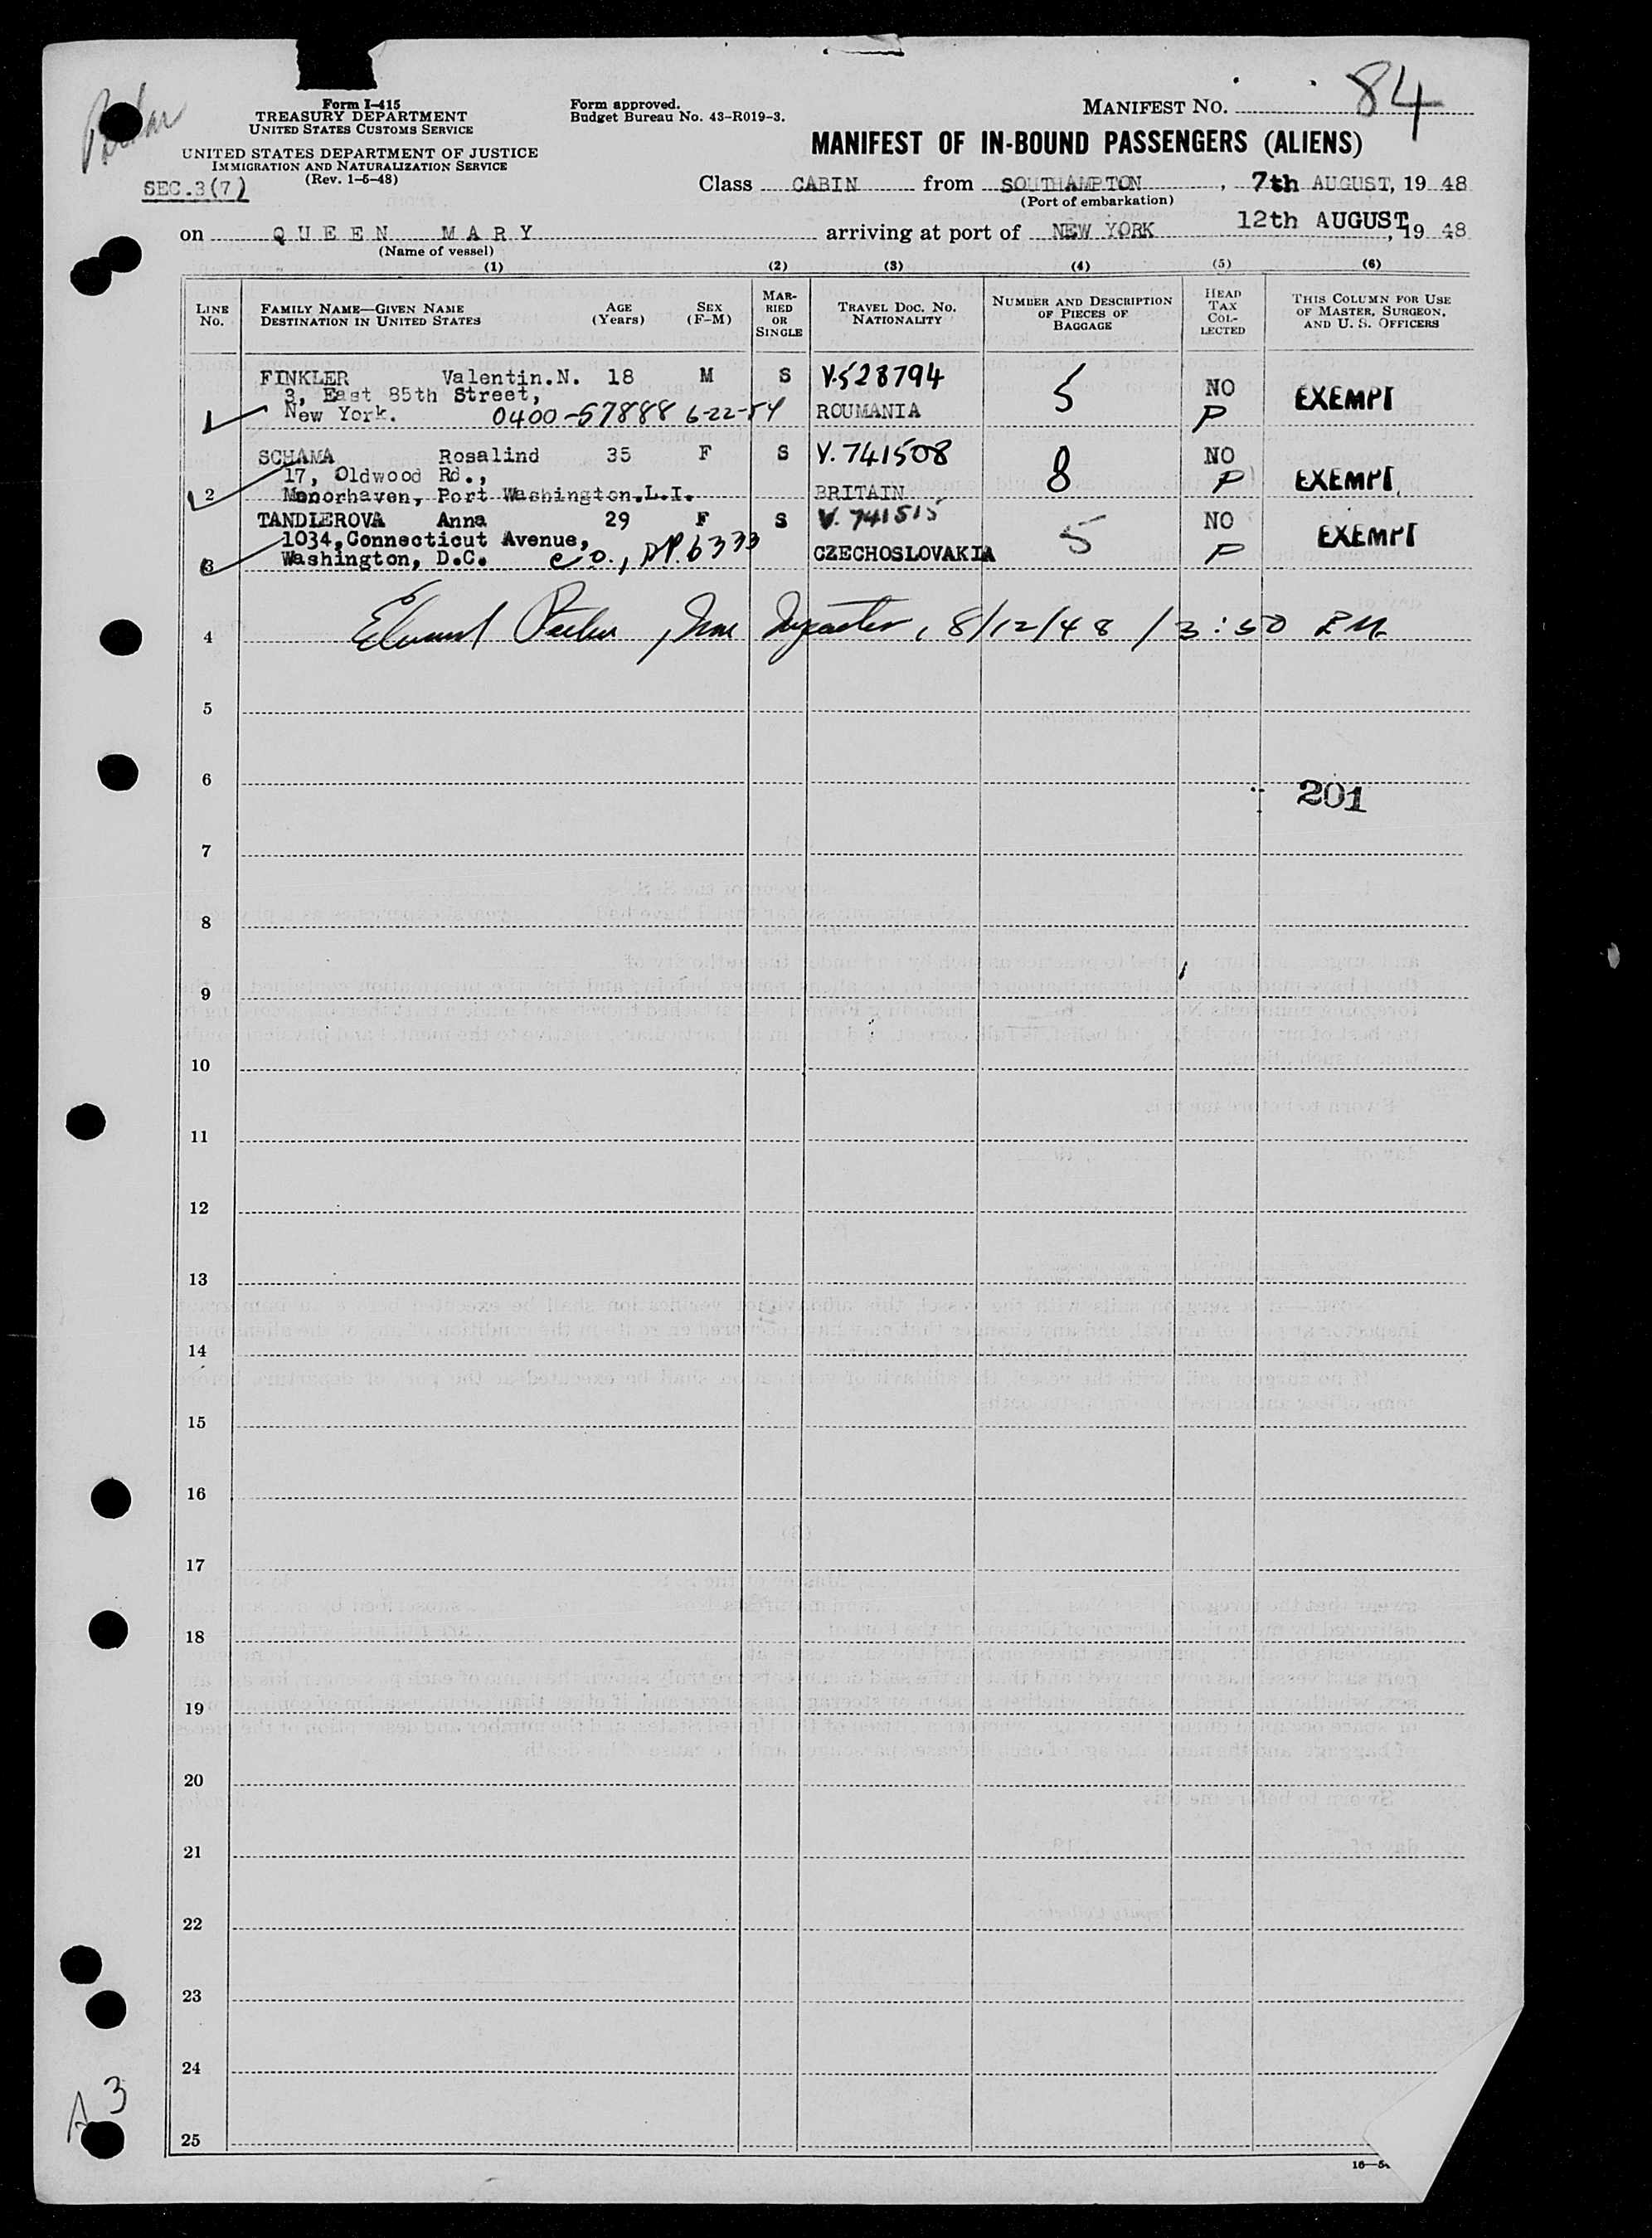 84
Form I-415
TREASURY DEPARTMENT
UNITED STATES CUSTOMS SERVICE
Form approved.
Budget Bureau No. 43-R019-3.
MANIFEST NO.
UNITED STATES DEPARTMENT OF JUSTICE
IMMIGRATION AND NATURALIZATION SERVICE
(Rev. 1-5-48)
SEC.3(7)
MANIFEST OF IN-BOUND PASSENGERS (ALIENS)
Class CABIN from SOUTHAMPTON, 7th AUGUST, 19 48
(Port of embarkation)
on QUEEN MARY arriving at port of NEW YORK 12th AUGUST, 19 48
(Name of vessel)
(1) (2) (3) (4) (5) (6)
LINE No. FAMILY NAME—GIVEN NAME DESTINATION IN UNITED STATES AGE (Years) SEX (F-M) MARRIED OR SINGLE TRAVEL DOC. NO. NATIONALITY NUMBER AND DESCRIPTION OF PIECES OF BAGGAGE HEAD TAX COLLECTED THIS COLUMN FOR USE OF MASTER, SURGEON, AND U. S. OFFICERS
FINKLER Valentin.N. 18 M S V.528794 5 NO EXEMPT
3, East 85th Street,
New York. 0400-57888 6-22-54 ROUMANIA P
SCHAMA Rosalind 35 F S V.741508 8 NO EXEMPT
17, Oldwood Rd.,
2 Manorhaven, Port Washington.L.I. BRITAIN P
TANDLEROVA Anna 29 F S V.741515 5 NO EXEMPT
1034, Connecticut Avenue,
3 Washington, D.C. CZECHOSLOVAKIA P
4 8/12/48 / 3:50 P.M.
5
6
201
7
8
9
10
11
12
13
14
15
16
17
18
19
20
21
22
23
24
25
A 3